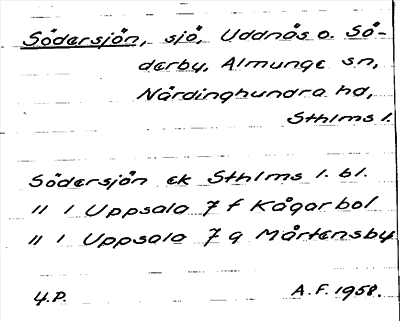 Södersjön, sjö, Uddnäs o. Sö-
derby, Almunge sn,
Närdinghundra hd,
Sthlms l.
Södersjön ek Sthlms l. bl.
" 1 Uppsala 7 f Kågarbol
" 1 Uppsala 7 g Mårtensby
4.P. A.F. 1958.